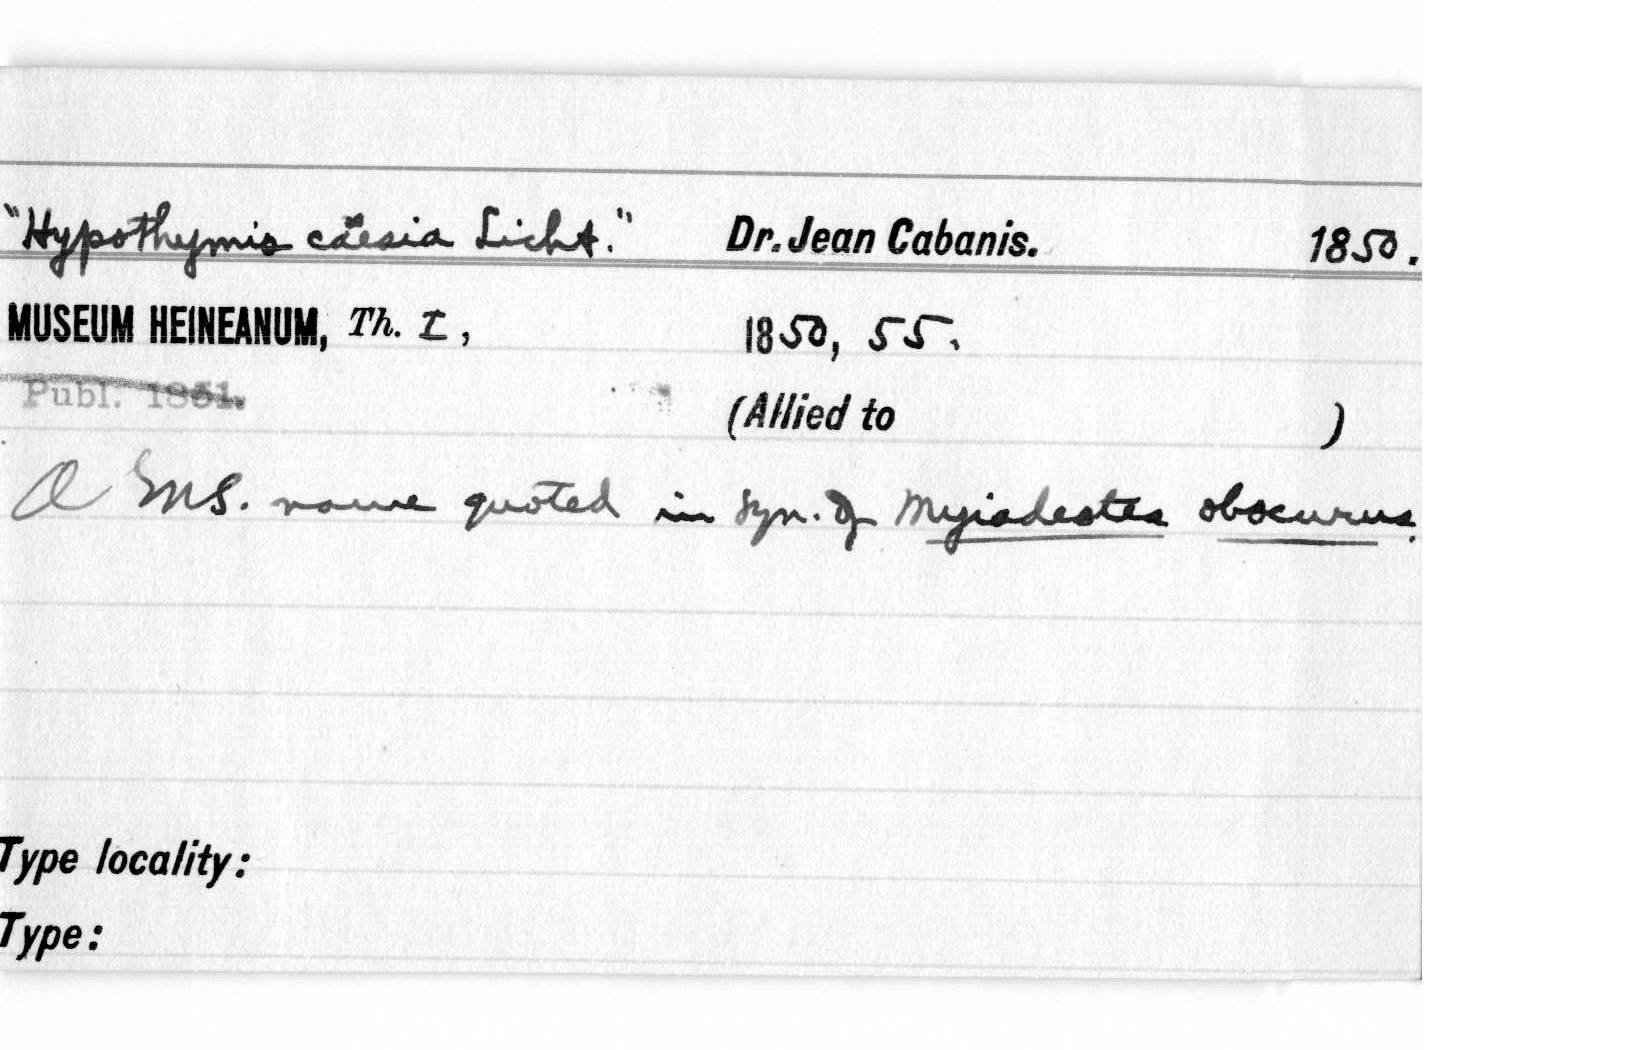 "Hypothymis caesia Licht." Dr. Jean Cabanis. 1850.
MUSEUM HEINEANUM, Th. I, 1850, 55.
Publ. 1851. (Allied to )
A MS. name quoted in syn. of Myiadestes obscurus.
Type locality:
Type: